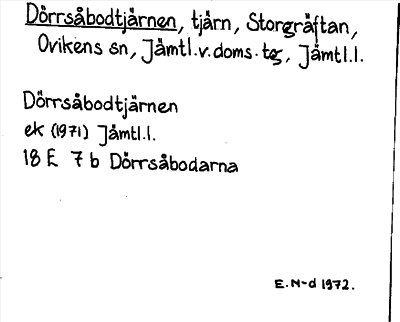 Dörrsåbodtjärnen, tjärn, Storgräftan,
Ovikens sn, Jämtl.v.doms.tg, Jämtl.l.
Dörrsåbodtjärnen
ek (1971) Jämtl.l.
18 E 7 b Dörrsåbodarna
E.N-d 1972.